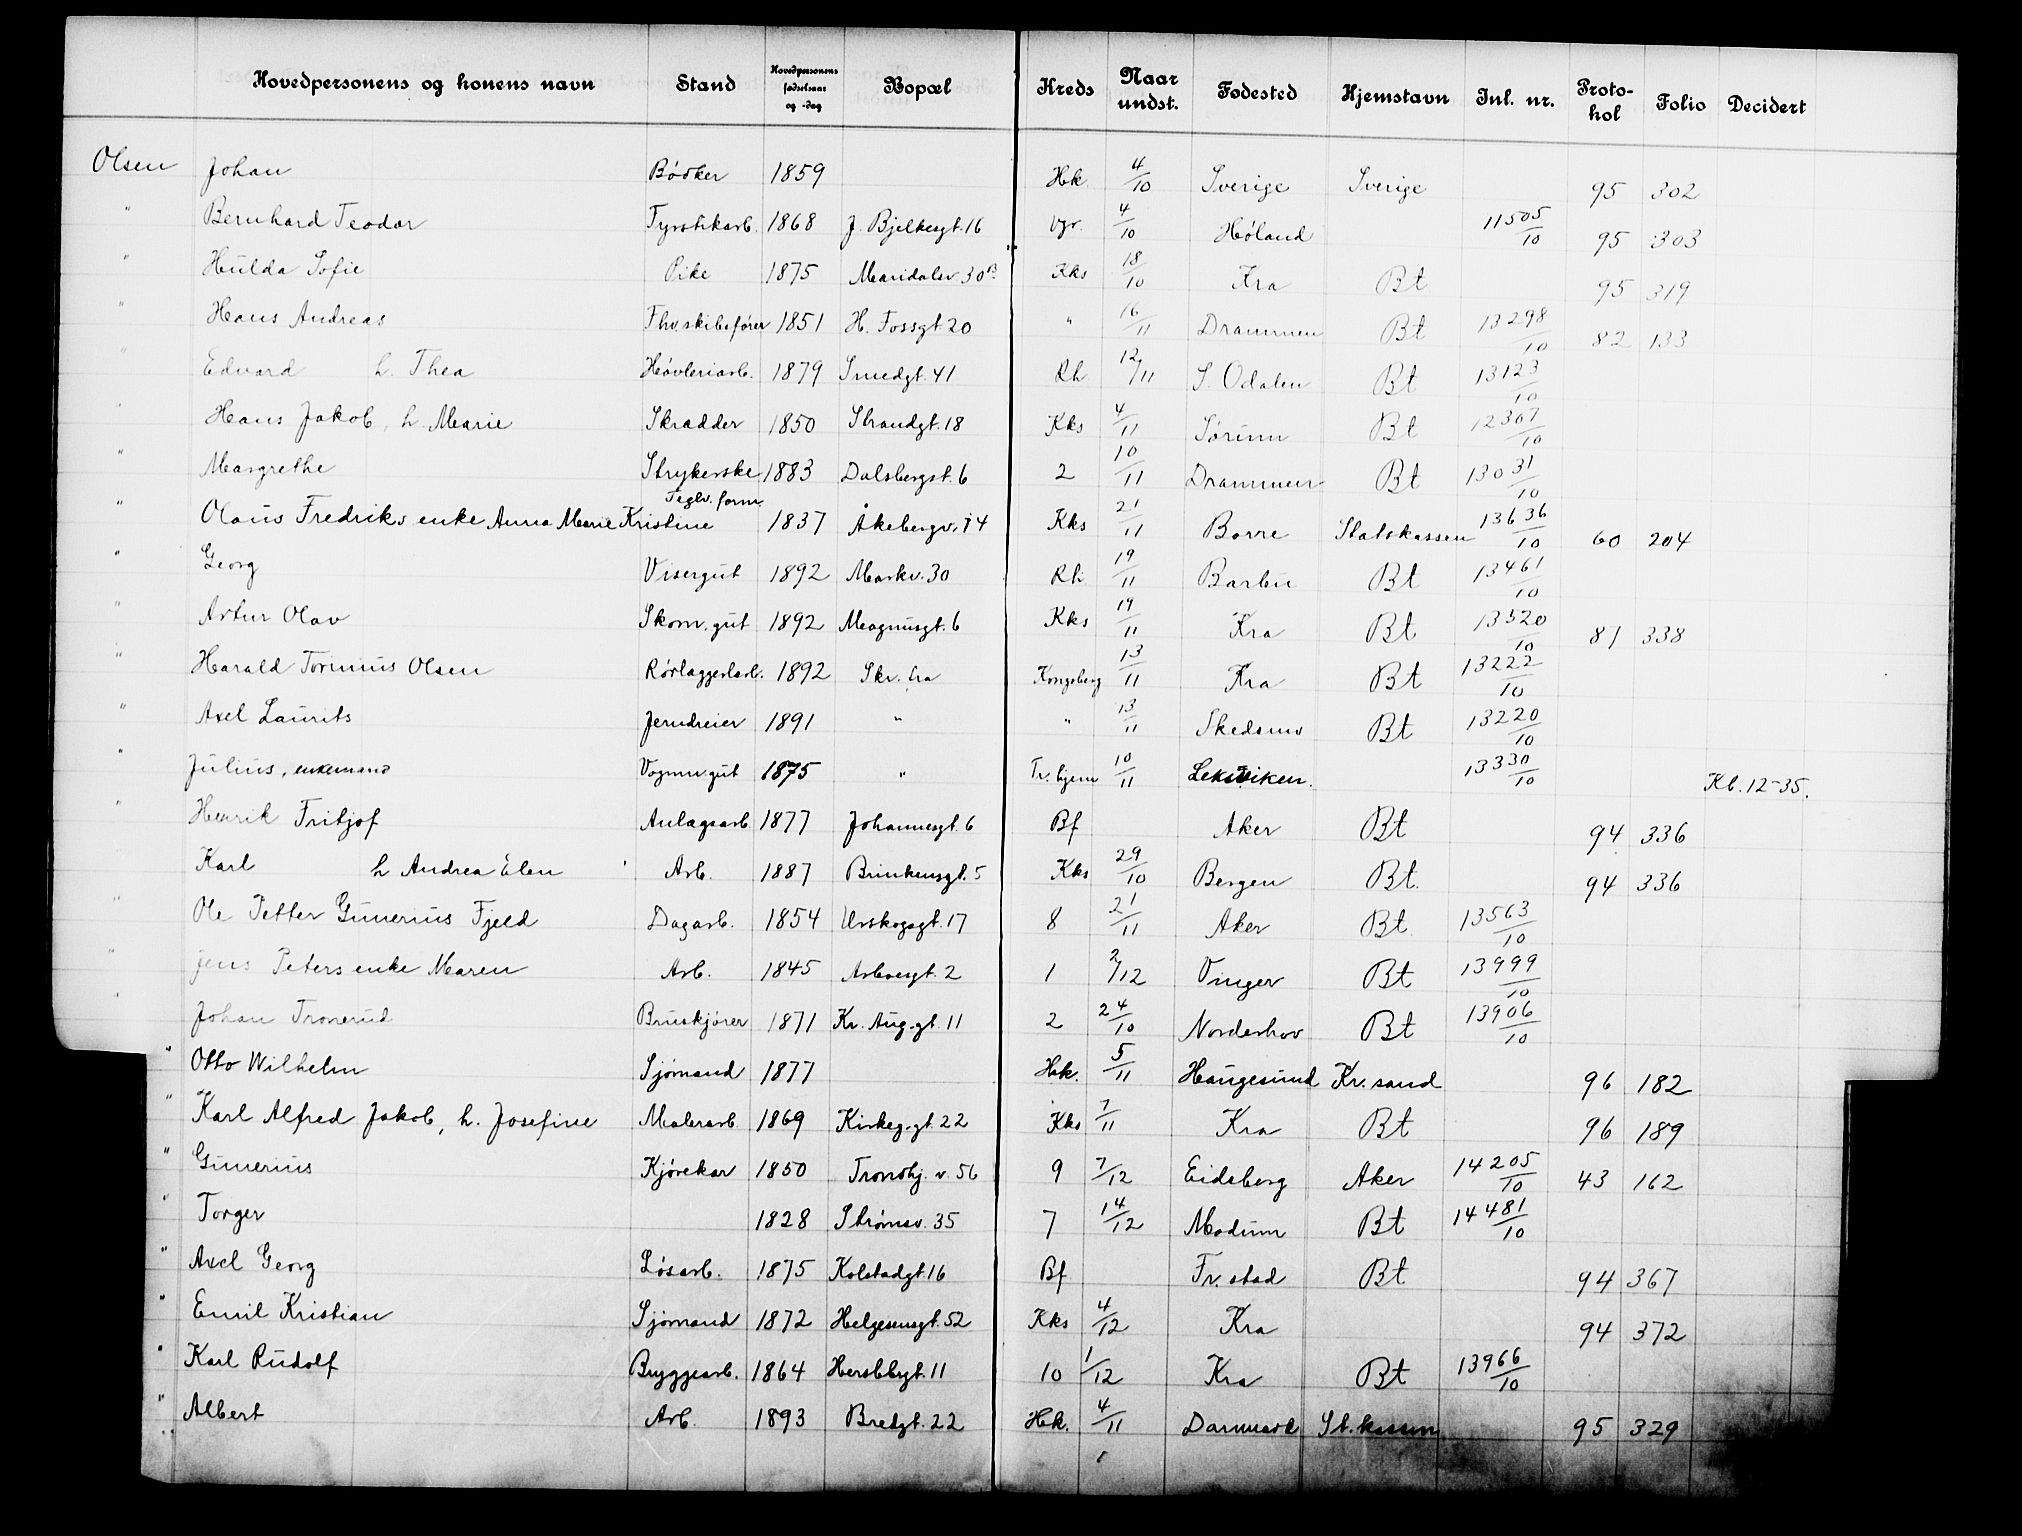 Hovedpersonens og konens navn Stand Hovedpersonens fødselsaar og -dag Bopæl Kreds Naar undst. Fødested Hjemstavn Inl. nr. Proto-kol Folio Decidert
Olsen Johan Bödker 1859 Hk. 4/10 Sverige Sverige 95 302
" Bernhard Teodor Fyrstikarb. 1868 J. Bjelkesgt. 16 Vgr. 4/10 Høland 11505/10 95 303
" Hulda Sofie Pike 1875 Maridalsv. 30 B Kks 18/10 Kra Bt 95 319
" Hans Andreas Fhv. skibsfører 1851 H. Fossgt 20 " 16/11 Drammen Bt 13298/10 82 133
" Edvard h. Thea Høvleriarb. 1879 Smedgt. 41 Rh 12/11 S. Odalen Bt 13123/10
" Hans Jakob, h. Marie Skrædder 1850 Strandgt. 18 Kks 4/11 Sørum Bt 12367/10
" Margrethe Strykerske 1883 Dalsbergst. 6 2 10/11 Drammen Bt 13031/10
" Olaus Fredriks enke Anna Marie Kristine Teglv. form. 1837 Åkebergv. 14 Kks 21/11 Borre Statskassen 13636/10 60 204
" Georg Visergut 1892 Markv. 30 Rh 19/11 Barbu Bt 13461/10
" Artur Olav Skom. gut 1892 Magnusgt. 6 Kks 19/11 Kra Bt 13520/10 87 338
" Harald Torinius Olsen Rørlæggerlærl. 1892 Skr. fra Kongsberg 13/11 Kra Bt 13222/10
" Axel Laurits Jerndreier 1891 " " 13/11 Skedsmo Bt 13220/10
" Julius, enkemand Vognm. gut 1875 " Tr. hjem 10/11 Leksviken. 13330/10 Kb. 12-35.
" Henrik Fritjof Anlægsarb. 1877 Johannesgt. 6 Bf Aker Bt 94 336
Karl h Andrea Elen Arb. 1887 Brinkensgt. 5 Kks 29/10 Bergen Bt. 94 336
" Ole Petter Gunerius Fjeld Dagarb. 1854 Urskogsgt. 17 8 21/11 Aker Bt 13563/10
" Jens Peters enke Maren Arb. 1845 Arbeiergt. 2 1 2/12 Vinger Bt 13999/10
" Johan Tronerud Bruskjører 1871 Kr. Aug. gt. 11 2 24/10 Norderhov Bt 13906/10
" Otto Wilhelm Sjømand 1877 Hk. 5/11 Haugesund Kr. sand 96 182
" Karl Alfred Jakob, h. Josefine Malerarb. 1869 Kirkeg. gt. 22 Kks 7/11 Kra Bt 96 189
" Gunerius Kjørekar 1850 Trondhj. v. 56 9 7/12 Eidsberg Aker 14205/10 43 162
" Torger 1828 Strømsv. 35 7 14/12 Modum Bt 14481/10
" Axel Georg Løsarb. 1875 Kolstadgt. 16 Bf Fr. stad Bt 94 367
" Emil Kristian Sjømand 1872 Helgesensgt. 52 Kks 4/12 Kra 94 372
" Karl Rudolf Bryggearb. 1864 Herslebsgt. 11 10 1/12 Kra Bt 13966/10
" Albert Arb. 1893 Bredgt. 22 Hk. 4/11 Danmark St. kassen 95 329